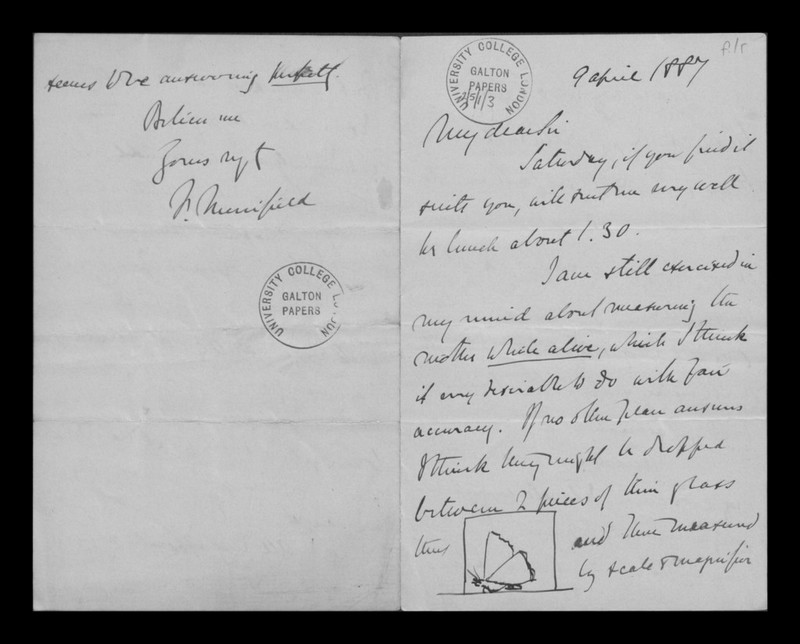 p.1r
UNIVERSITY COLLEGE LONDON
GALTON
PAPERS
2/5/1/3
9 April 1887
My dear Sir
Saturday, if you find it
suits you, will suit me very well
to lunch about 1.30.
I am still exercised in
my mind about measuring the
moths while alive, which I think
it very desirable to do with fair
accuracy. If no other plan answers
I think they might be dropped
between 2 pieces of thin glass
thus and then measured
by scale & magnifier
seems to be answering perfectly.
Believe me
Yours
F. Merrifield
UNIVERSITY COLLEGE LONDON
GALTON
PAPERS